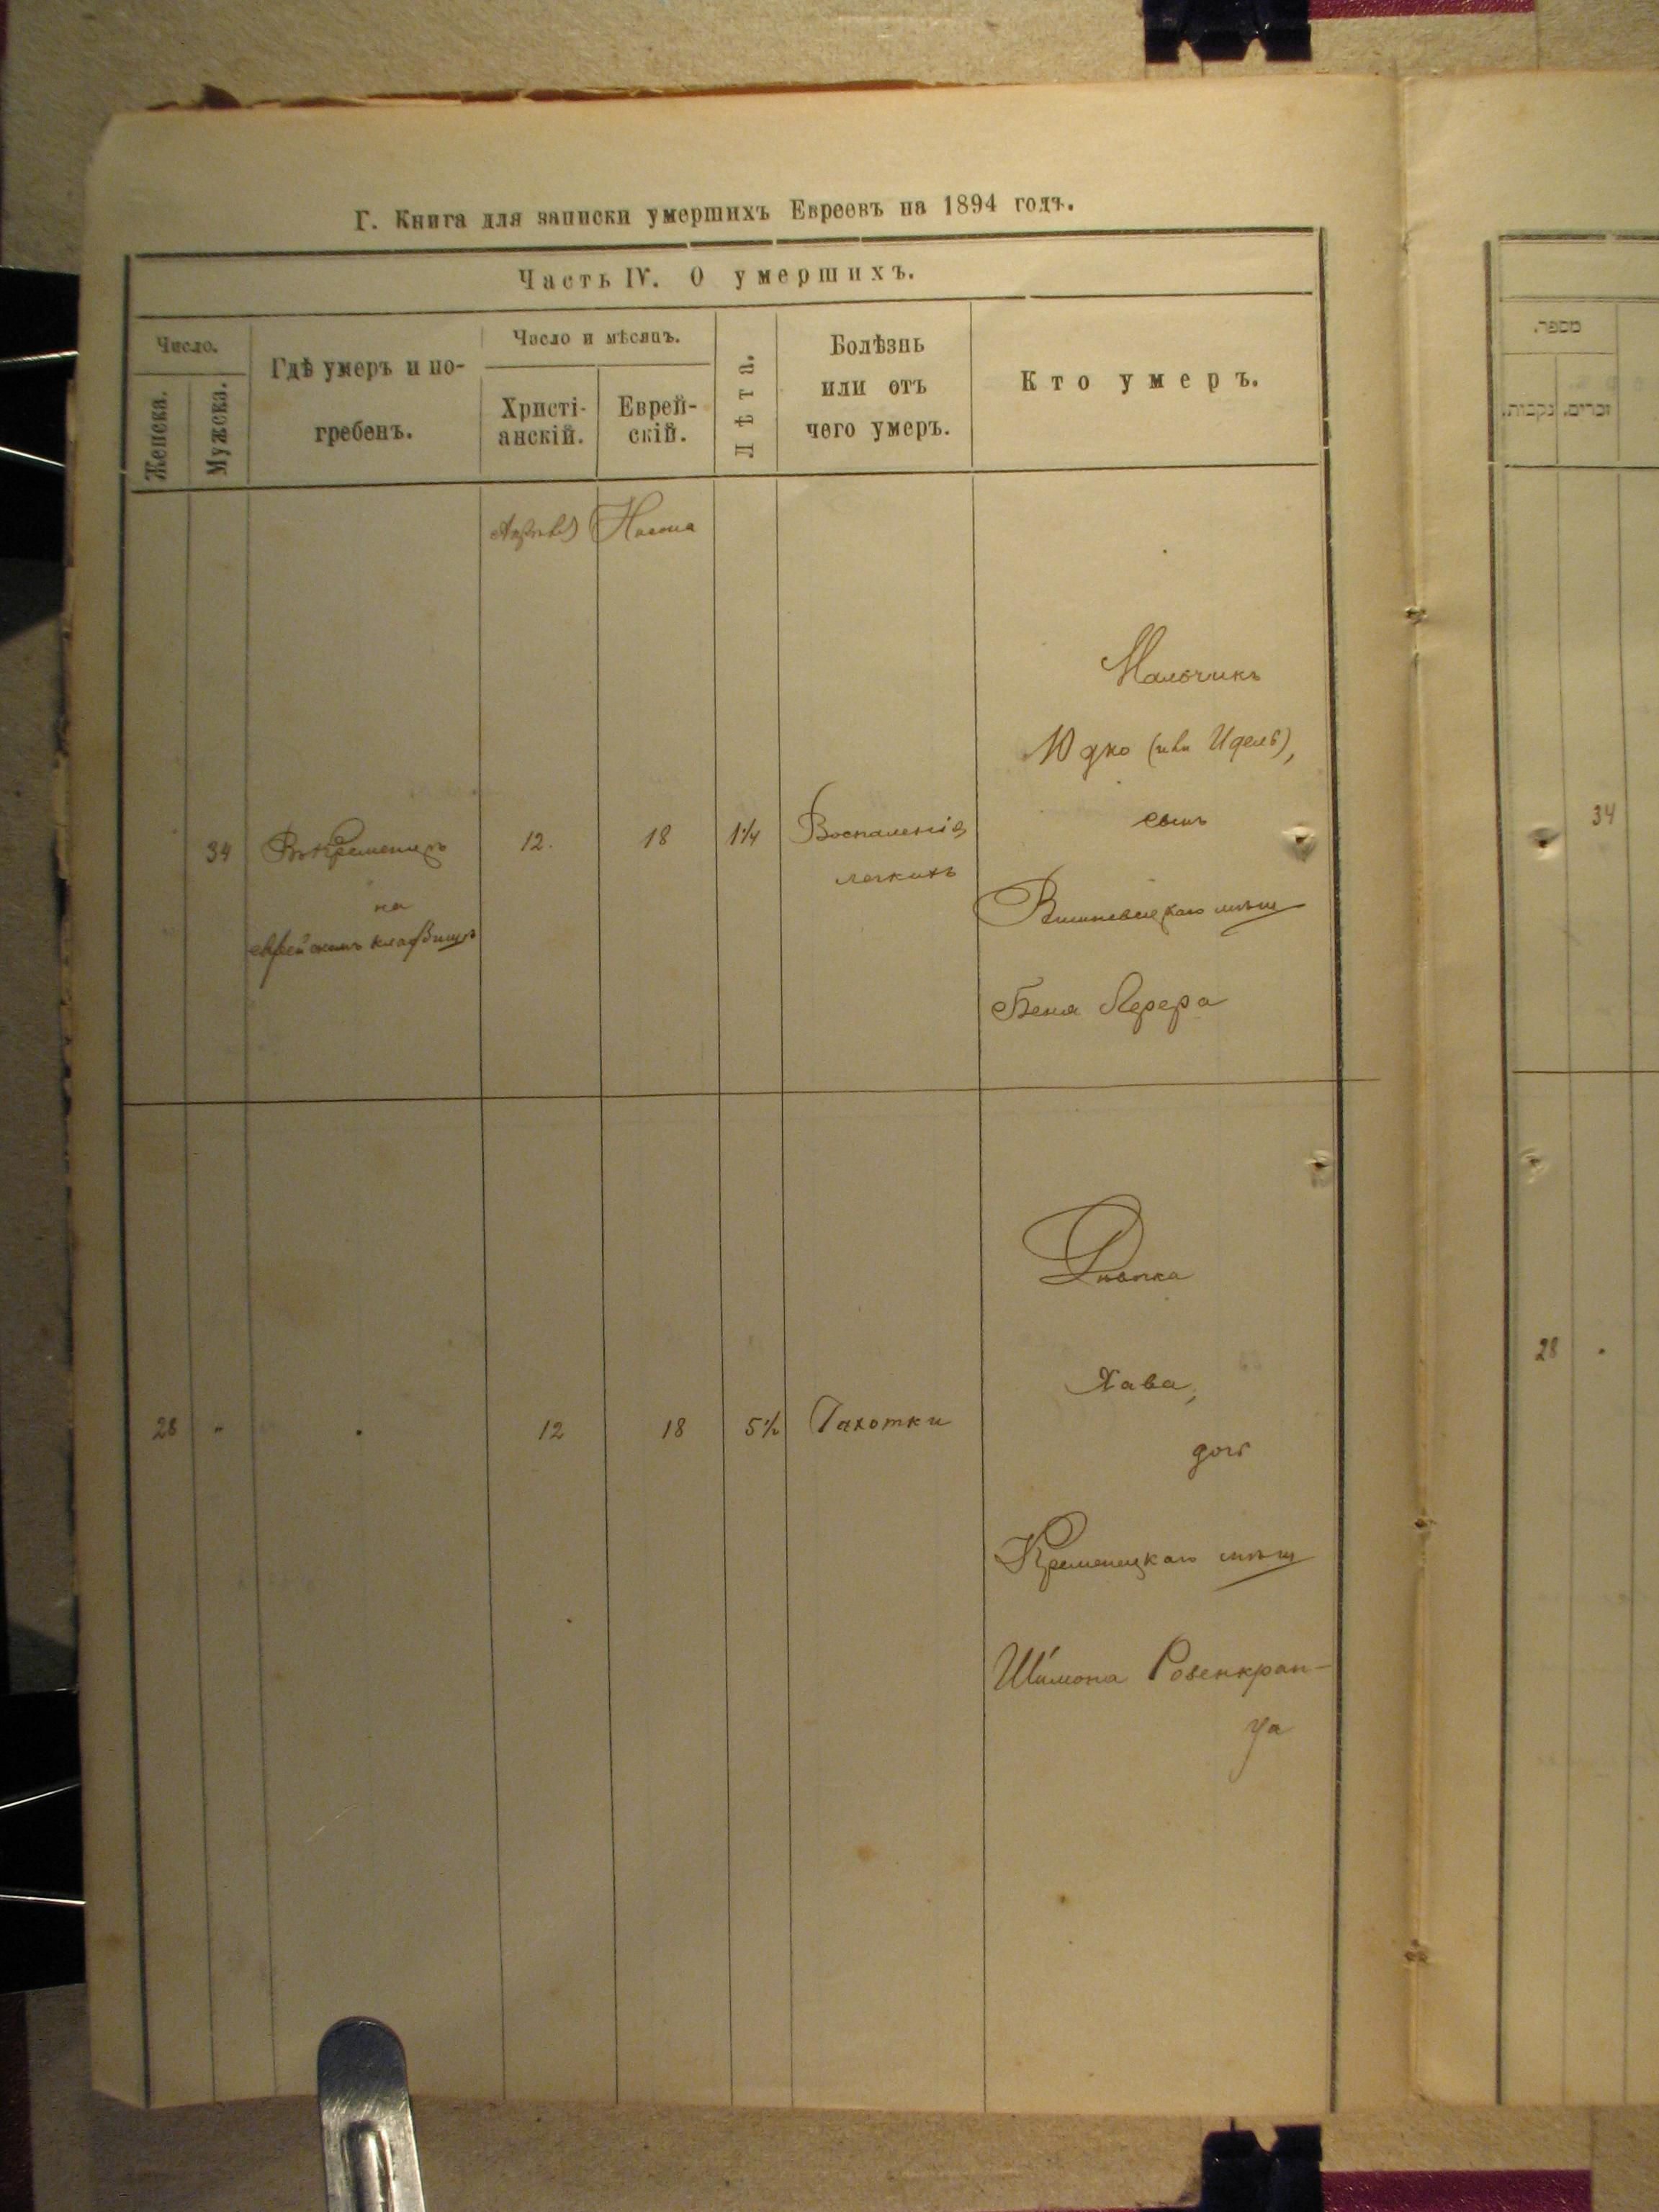 Г. Книга для записки умершихъ Евреевъ на 1894 годъ.
Часть IV. О умершихъ.
Число.
Женска.
Мужска.
Гдѣ умеръ и по-
гребенъ.
Число и мѣсяцъ.
Христі-
анскій.
Еврей-
скій.
Лѣта.
Болѣзнь
или отъ
чего умеръ.
Кто умеръ.
Нисона
34
Въ Кременцѣ
на
еврейскомъ кладбищѣ
12.
18
1 1/4
Воспаленія
легкихъ
Мальчикъ
Юдко (или Идель),
сынъ
Вишневецкаго мѣщ
Беня Лерера
28
"
"
12
18
5 1/2
Чахотки
Дѣвочка
Хава,
дочь
Кременецкаго мѣщ
Шимона Розенкран-
ца
מספר.
זכרים.
נקבות.
34
28
"